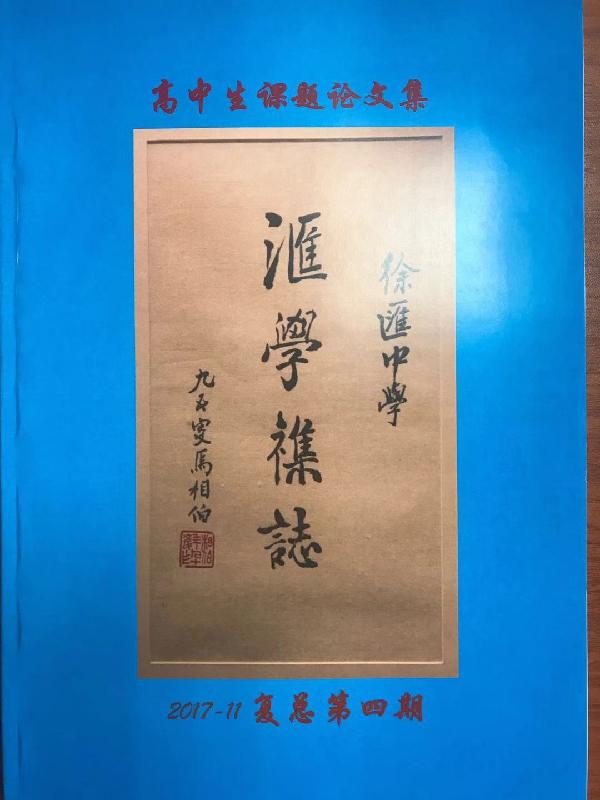 高中生课题论文集
徐滙中學
滙學襍誌
九五叟馬相伯
2017-11 复总第四期